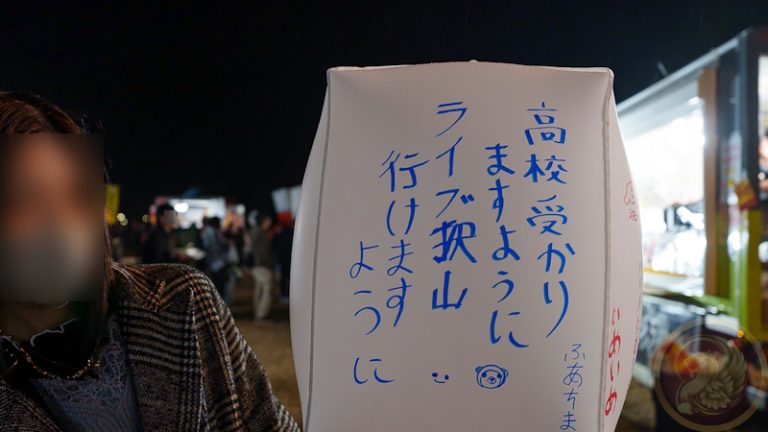 高校受かり
ますように
ライブ択山
行けます
ように
ふあちま
いめいめ